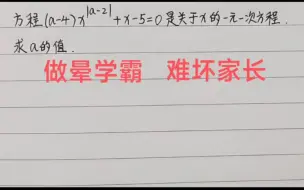 方程(a-4)x^|a-2|+x-5=0是关于x的一元一次方程.
求a的值.
做晕学霸 难坏家长